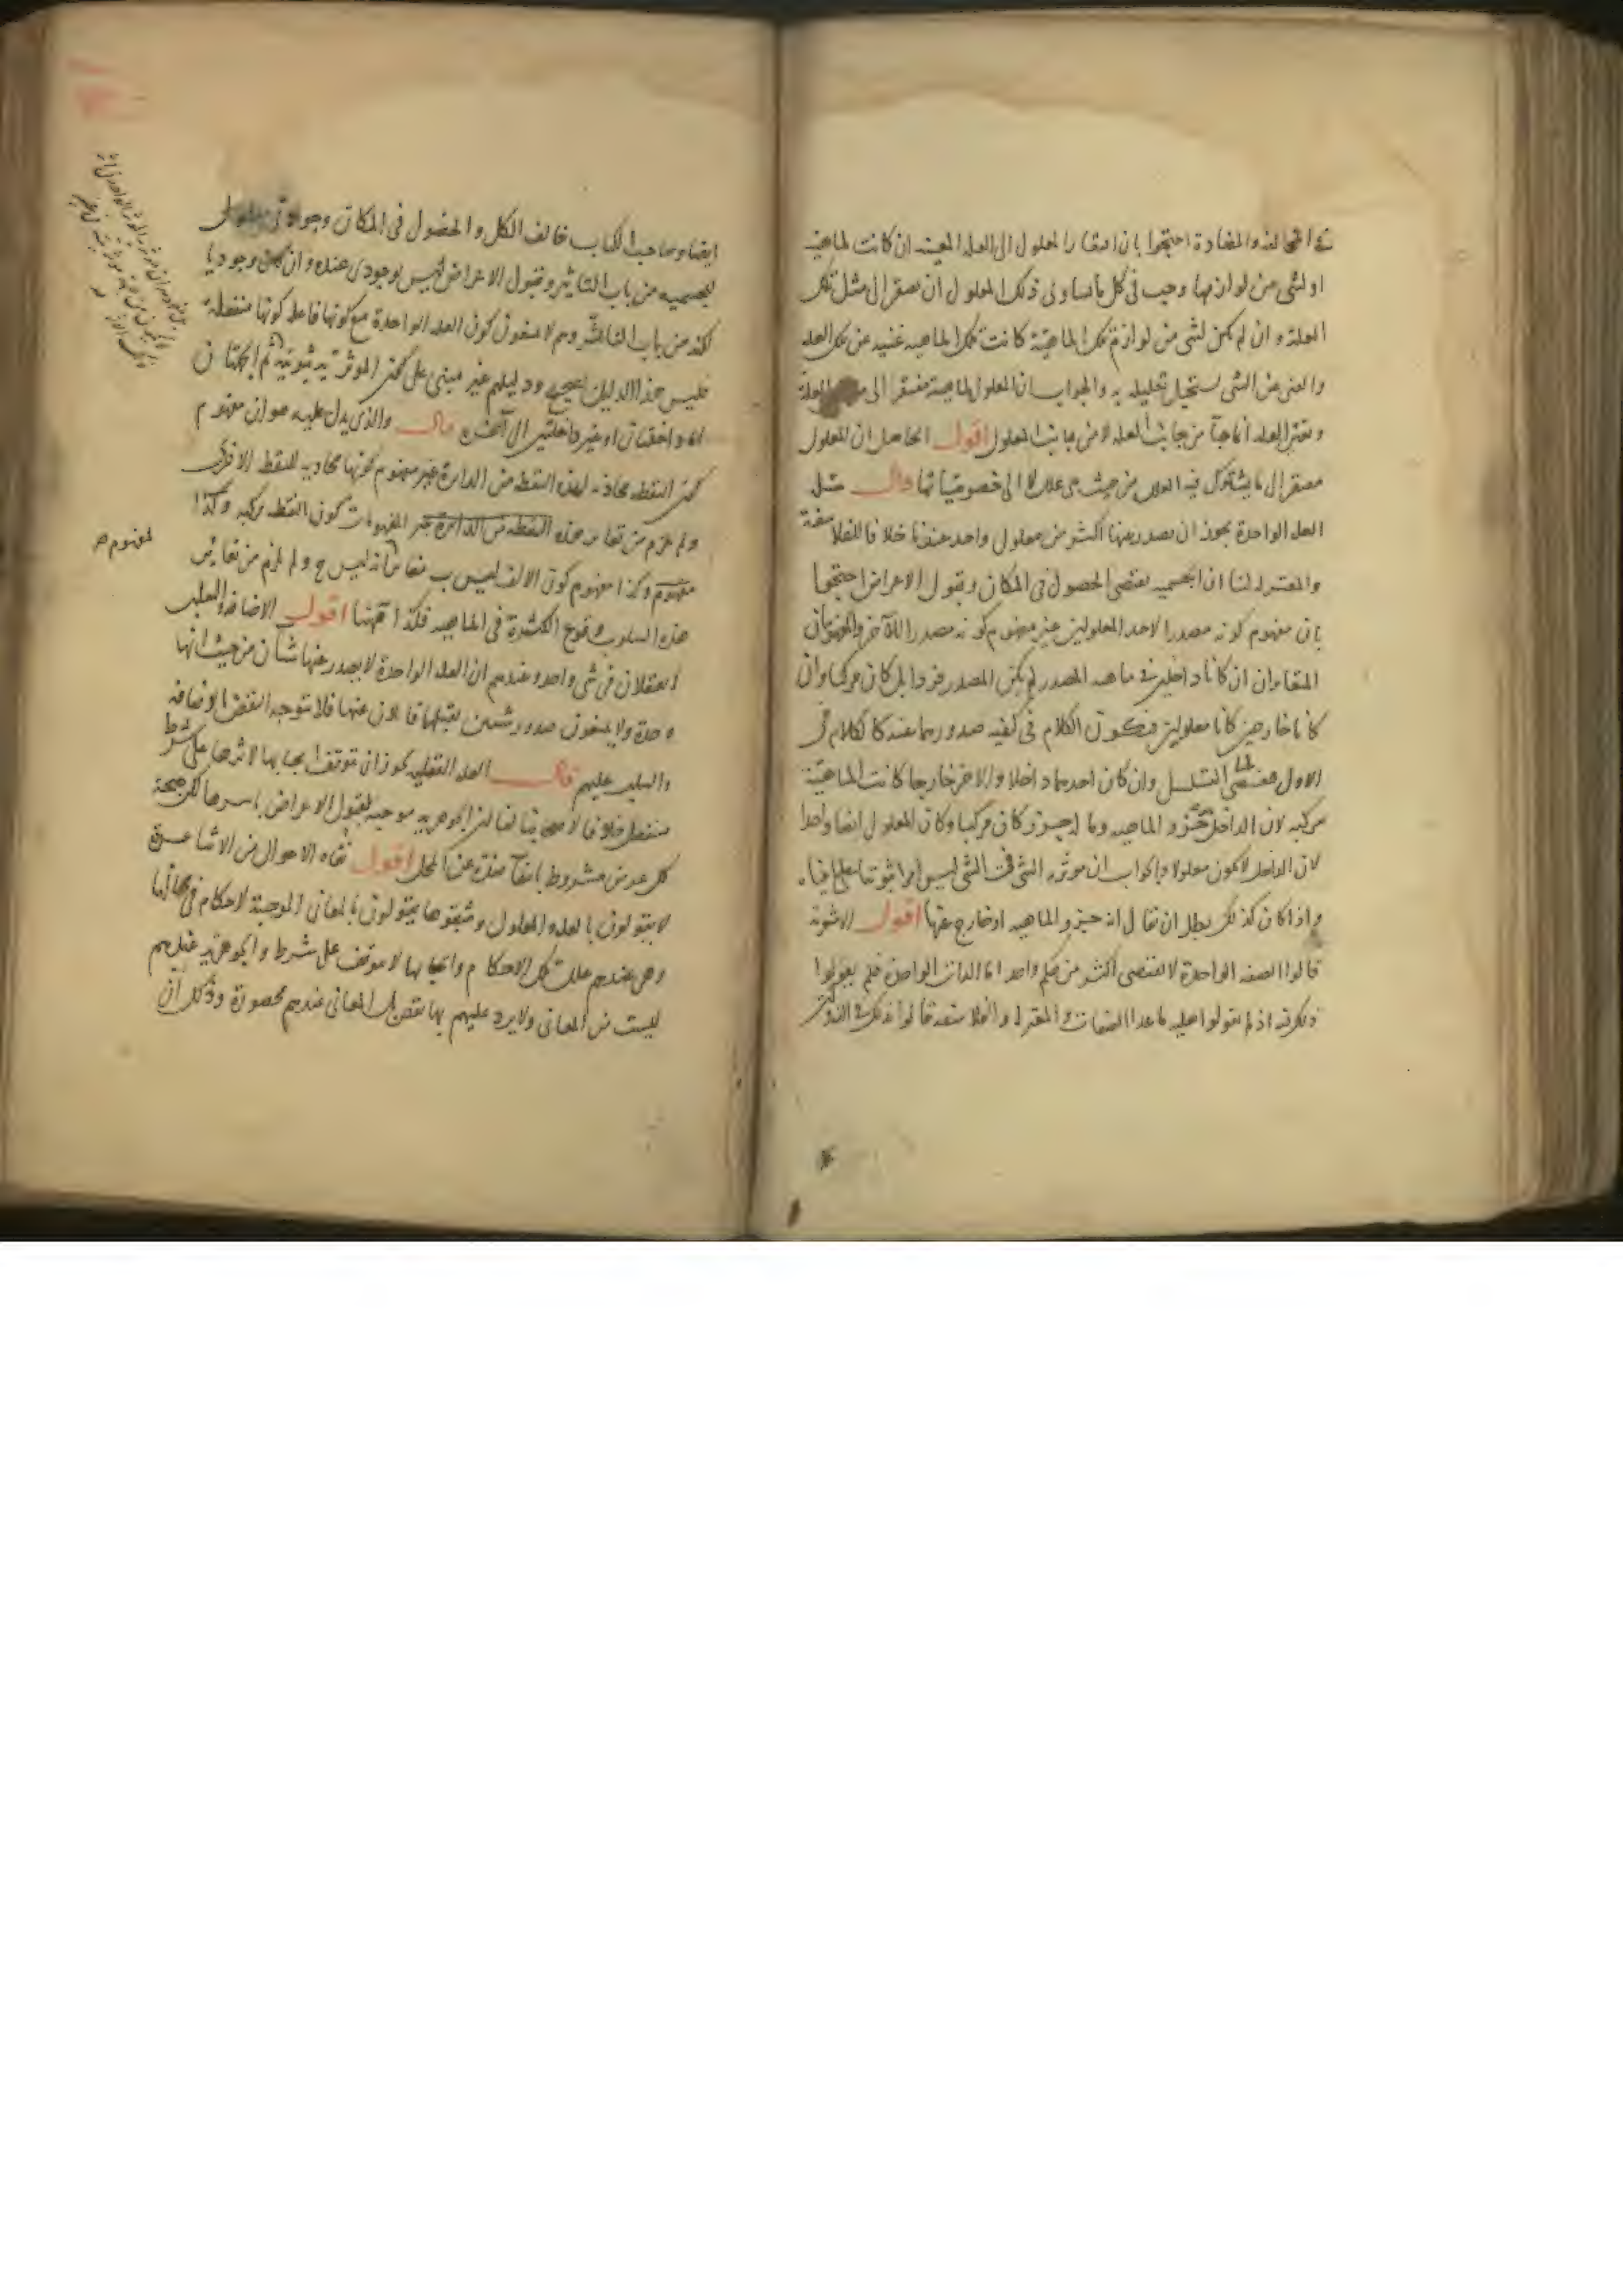 في المخالفة والمضادة احتجوا بان افتقار المعلول الى العلة المعينة ان كانت لماهيته
او لشى من لوازمها وجب في كل ما يساوى ذلك المعلول ان يفتقر الى مثل تلك
العلة وان لم يكن لشى من لوازم تلك الماهية كانت تلك الماهية غنية عن تلك العلة
والغنى عن الشى يستحيل تعليله به والجواب ان المعلول لماهيته مفتقر الى العلة
وتعين العلة انما جآ من جانب العلة لا من جانب المعلول اقول الحاصل ان المعلول
مفتقر الى ما يشترك فيه العلل من حيث هى علل لا الى خصوصياتها قال مثل
العلة الواحدة يجوز ان يصدر عنها اكثر من معلول واحد عندنا خلافا للفلاسفة
والمعتزلة لنا ان الجسمية تقتضى الحصول فى المكان وقبول الاعراض احتجوا
بان مفهوم كونه مصدرا لاحد المعلولين غير مفهوم كونه مصدرا للآخر والمفهومان
المتغايران ان كانا داخلين في ماهية المصدر لم يكن المصدر فردا بل كان مركبا وان
كانا خارجين كانا معلولين فيكون الكلام فى كيفية صدورهما عنه كالكلام فى
الاول فيفضى الى التسلسل وان كان احدهما داخلا والاخر خارجا كانت الماهية
مركبة لان الداخل جزو الماهية وما له جزو كان مركبا وكان المعلول ايضا واحدا
لان الداخل لا يكون معلولا والجواب ان موثرية الشى فى الشى ليس امرا ثبوتيا على ما بيناه
واذا كان كذلك بطل ان يقال انه جزو الماهية او خارج عنها اقول الاشعرية
قالوا الصفة الواحدة لا تقتضى اكثر من حكم واحد اما الذات الواحدة فلم يقولوا
ذلك فيه اذ لم يقولوا بعلية ما عدا الصفات والمعتزلة والفلاسفة قالوا بذلك في الذوات
ايضا وصاحب الكتاب خالف الكل والحصول فى المكان وجوازه
للجسمية من باب التاثير وقبول الاعراض ليس بوجودى عنده وان يكن وجوديا
لكنه من باب التاثر وهم لا يمنعون كون العلة الواحدة مع كونها فاعلة كونها منفعلة
فليس هذا الدليل بصحيح ودليلهم غير مبنى على كون الموثرية ثبوتية ثم الجهتان
اما داخلتان او غير داخلتين الى آخره قال والذى يدل عليه هو ان مفهوم
كون النقطة محاذية لهذه النقطة من الدايرة غير مفهوم كونها محاذية للنقطة الاخرى
ولم يلزم من تغاير هذه المفهومات كون النقطة مركبة وكذا
مفهوم وكذا مفهوم كون الالف ليس ب يغاير انه ليس ج ولم يلزم من تغاير
لمفهوم
هذه السلوب وقوع الكثرة فى الماهية فكذا ههنا اقول الاضافة والسلب
لا يعقلان فى شى واحد وعندهم ان العلة الواحدة لا يصدر عنها شيآن من حيث انها
واحدة ولا يمنعون صدور شيئين بقابلين عنها فلا يتوجه النقض بالاضافة
والسلب عليهم قال العلة العقلية يجوز ان يتوقف ايجابها لاثرها على شرط
منفصل خلافا لاصحابنا لنا ان الجوهرية موجبة لقبول الاعراض باسرها لكن صحة
كل عرض مشروط بانتفآ ضده عن المحل اقول نفاة الاحوال من الاشاعرة
لا يقولون بالعلة والمعلول ومثبتوها يقولون بالمعانى الموجبة لاحكام فى محالها
وهى عندهم علل تلك الاحكام وايجابها لا يتوقف على شرط والجوهرية عندهم
ليست من المعانى ولا يرد عليهم بها نقض بل المعانى عندهم محصورة وذلك ان